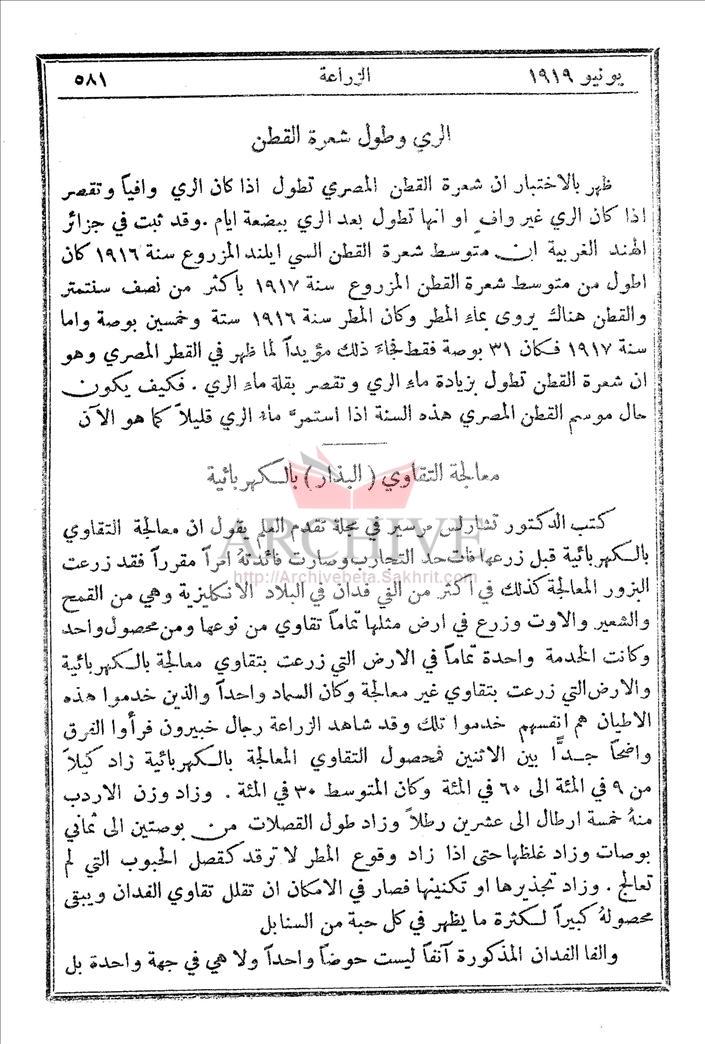 يونيو ١٩١٩
الزراعة
٥٨١
الري وطول شعرة القطن
ظهر بالاختبار ان شعرة القطن المصري تطول اذا كان الري وافياً وتقصر
اذا كان الري غير وافٍ او انها تطول بعد الري ببضعة ايام . وقد ثبت في جزائر
الهند الغربية ان متوسط شعرة القطن السي ايلند المزروع سنة ١٩١٦ كان
اطول من متوسط شعرة القطن المزروع سنة ١٩١٧ باكثر من نصف سنتمتر
والقطن هناك يروى بماء المطر وكان المطر سنة ١٩١٦ ستة وخمسين بوصة واما
سنة ١٩١٧ فكان ٣١ بوصة فقط فجاءَ ذلك مؤيداً لما ظهر في القطر المصري وهو
ان شعرة القطن تطول بزيادة ماء الري وتقصر بقلة ماء الري . فكيف يكون
حال موسم القطن المصري هذه السنة اذا استمرَّ ماء الري قليلاً كما هو الآن
معالجة التقاوي ( البذار ) بالكهربائية
كتب الدكتور تشارلس مرسير في مجلة تقدم العلم يقول ان معالجة التقاوي
بالكهربائية قبل زرعها فات حد التجارب وصارت فائدتهُ امراً مقرراً فقد زرعت
البزور المعالجة كذلك في اكثر من الفي فدان في البلاد الانكليزية وهي من القمح
والشعير والاوت وزرع في ارض مثلها تماماً تقاوي من نوعها ومن محصول واحد
وكانت الخدمة واحدة تماماً في الارض التي زرعت بتقاوي معالجة بالكهربائية
والارض التي زرعت بتقاوي غير معالجة وكان السماد واحداً والذين خدموا هذه
الاطيان هم انفسهم خدموا تلك وقد شاهد الزراعة رجال خبيرون فرأوا الفرق
واضحاً جدًّا بين الاثنين فمحصول التقاوي المعالجة بالكهربائية زاد كيلاً
من ٩ في المئة الى ٦٠ في المئة وكان المتوسط ٣٠ في المئة . وزاد وزن الاردب
منهُ خمسة ارطال الى عشرين رطلاً وزاد طول القصلات من بوصتين الى ثماني
بوصات وزاد غلظها حتى اذا زاد وقوع المطر لا ترقد كقصل الحبوب التي لم
تعالج . وزاد تجذيرها او تكنينها فصار في الامكان ان تقلل تقاوي الفدان ويبقى
محصولهُ كبيراً لكثرة ما يظهر في كل حبة من السنابل
والفا الفدان المذكورة آنفاً ليست حوضاً واحداً ولا هي في جهة واحدة بل
ARCHIVE
http://Archivebeta.Sakhrit.com